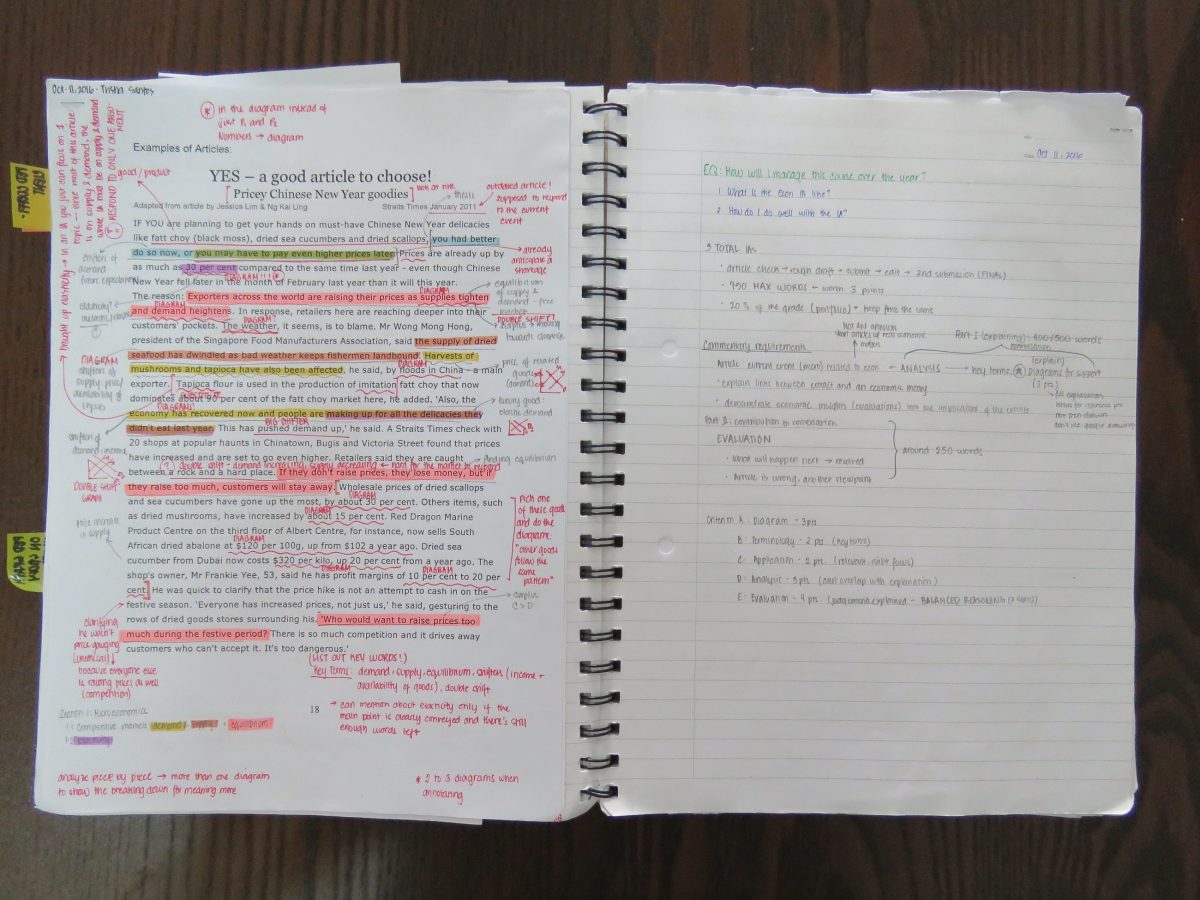 Oct. 11, 2016 - Trisha Santos
* in the diagram instead of
just P1 and P2
Numbers → diagram
Examples of Articles:
YES – a good article to choose!
Pricey Chinese New Year goodies
Adapted from article by Jessica Lim & Ng Kai Ling
Straits Times January 2011
good / product
outdated article!
supposed to respond
to the current
event
IF YOU are planning to get your hands on must-have Chinese New Year delicacies
like fatt choy (black moss), dried sea cucumbers and dried scallops, you had better
do so now, or you may have to pay even higher prices later. Prices are already up by
as much as 30 per cent compared to the same time last year - even though Chinese
New Year fell later in the month of February last year than it will this year.
The reason: Exporters across the world are raising their prices as supplies tighten
and demand heightens. In response, retailers here are reaching deeper into their
customers' pockets. The weather, it seems, is to blame. Mr Wong Mong Hong,
president of the Singapore Food Manufacturers Association, said the supply of dried
seafood has dwindled as bad weather keeps fishermen landbound. Harvests of
mushrooms and tapioca have also been affected, he said, by floods in China - a main
exporter. Tapioca flour is used in the production of imitation fatt choy that now
dominates about 90 per cent of the fatt choy market here, he added. 'Also, the
economy has recovered now and people are making up for all the delicacies they
didn't eat last year. This has pushed demand up,' he said. A Straits Times check with
20 shops at popular haunts in Chinatown, Bugis and Victoria Street found that prices
have increased and are set to go even higher. Retailers said they are caught
between a rock and a hard place. If they don't raise prices, they lose money, but if
they raise too much, customers will stay away. Wholesale prices of dried scallops
and sea cucumbers have gone up the most, by about 30 per cent. Others items, such
as dried mushrooms, have increased by about 15 per cent. Red Dragon Marine
Product Centre on the third floor of Albert Centre, for instance, now sells South
African dried abalone at $120 per 100g, up from $102 a year ago. Dried sea
cucumber from Dubai now costs $320 per kilo, up 20 per cent from a year ago. The
shop's owner, Mr Frankie Yee, 53, said he has profit margins of 10 per cent to 20 per
cent. He was quick to clarify that the price hike is not an attempt to cash in on the
festive season. 'Everyone has increased prices, not just us,' he said, gesturing to the
rows of dried goods stores surrounding his. 'Who would want to raise prices too
much during the festive period? There is so much competition and it drives away
customers who can't accept it. It's too dangerous.'
already
anticipate a
shortage
DOUBLE SHIFT!
BIG SHIFTER
finding equilibrium
DOUBLE SHIFT
GRAPH
Pick one
of these goods
and do the
diagram:
"other goods
follow the
same
pattern"
surplus
clarifying
he wasn't
price gouging
(unethical)
because everyone else
is raising prices as well
(competition)
(LIST OUT KEY WORDS!)
Key Terms: demand, supply, equilibrium, shifters (income +
availability of goods), double shift
→ can mention about elasticity only if the
main point is clearly conveyed and there's still
enough words left
18
Section 1: Microeconomics
1.1 Competitive markets: demand + supply + equilibrium
1.2 elasticity
analyze piece by piece → more than one diagram
to show the breaking down for meaning more
* 2 to 3 diagrams when
annotating
Oct 11, 2016
EQ: How will I manage this course over the year?
1. What is the Econ IA like?
2. How do I do well with the IA?
3 TOTAL IAS
• article check → rough draft → submit → edit → 2nd submission (FINAL)
• 750 MAX WORDS - worth 3 points
• 20% of the grade (portfolio) * keep from the same
NOT AN OPINION
Part I (explaining): 400/500 words
Commentary requirements
Article current event (main) related to econ ← ANALYSIS → key terms, Diagrams for support
(explain)
(3 pts)
• explain links between extract and an economic theory
• demonstrate economic insights (evaluations) into the implications of the extract
Part II: contribution to conversation
EVALUATION
around 250 words
• What will happen next → resolved
• Article is wrong, another viewpoint
Criterion A: Diagram - 3pts.
B: Terminology - 2 pts. (key terms)
C: Application - 2 pts. (relevant, right focus)
D: Analysis - 3 pts. (can overlap with explanation)
E: Evaluation - 4 pts. (judgement explained - BALANCED REASONING (2 sides))